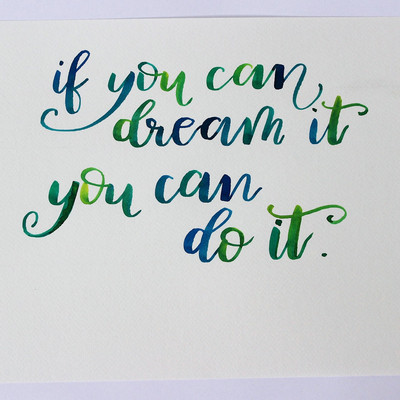 if you can
dream it
you can
do it.